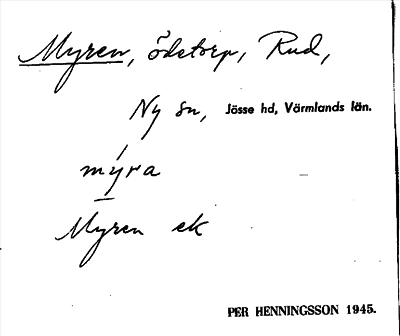 Myren, ödetorp, Rud,
Ny sn, Jösse hd, Värmlands län.
mýra
Myren ek
PER HENNINGSSON 1945.